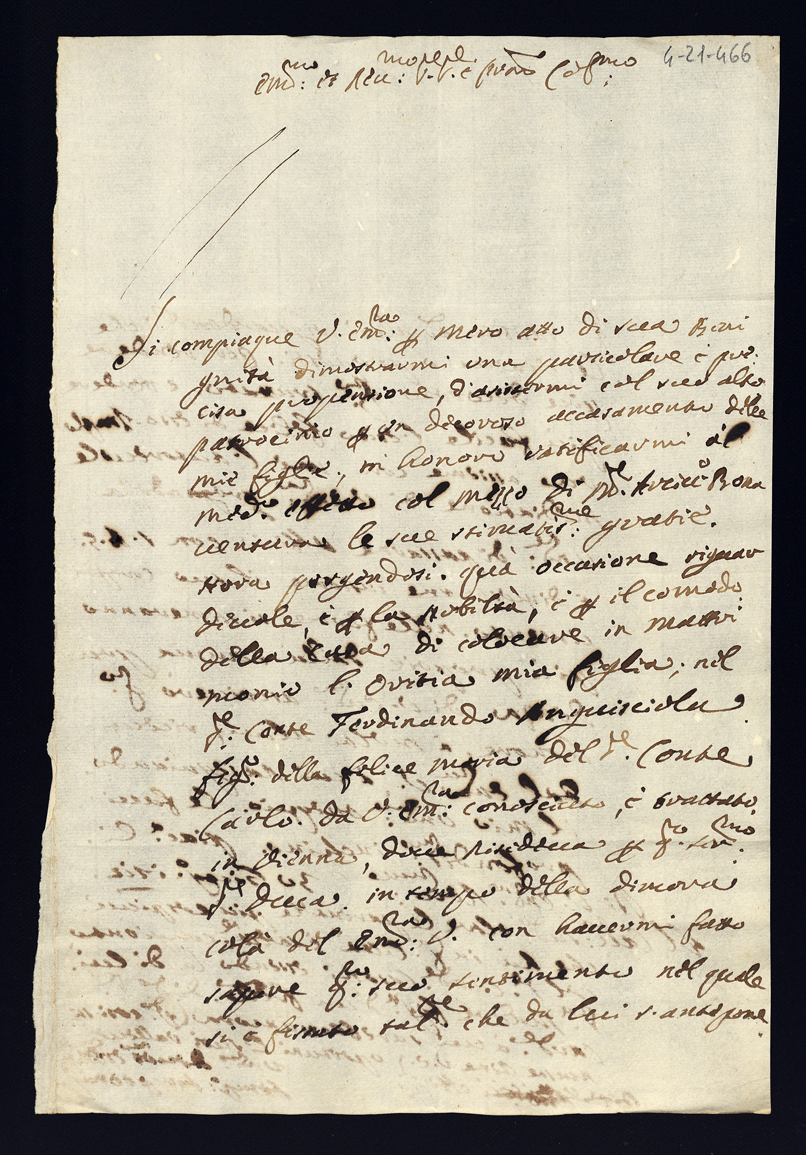 4-21-466
Em.mo: et Reu.mo: Sr. Sr. e pron Col.mo:
Si compiaque V. Em.za: per mero atto di sua Beni
gnità dimostrarmi una particolare è pre:
cisa propensione, d'asistermi col suo alto
patrocinio per un decoroso accasamento delle
mie figlie, m'honorò ratificarmi il
med.o effetto col mezzo di Arcip. Bona
uentura le sue stimatis.me: gratie.
Hora porgendosi quà occasione riguar
deuole, è per la Nobiltà, è per il comodo
della Casa di colocare in Matri
monio l'Oritia mia figlia, nel
Sr.: Conte Ferdinando Anguisciola
figl.o della felice moria del Sr. Conte
Carlo. da V. Em.za: conosciuto, è trattato
in Vienna, doue risiedeua per q.to Ser.mo:
Sr. Duca. in tempo della dimora
colà del Em.za: V. con hauermi fatto
sapere q.to: suo sentimento nel quale
si è fermato tal.te che da lui s'antepone